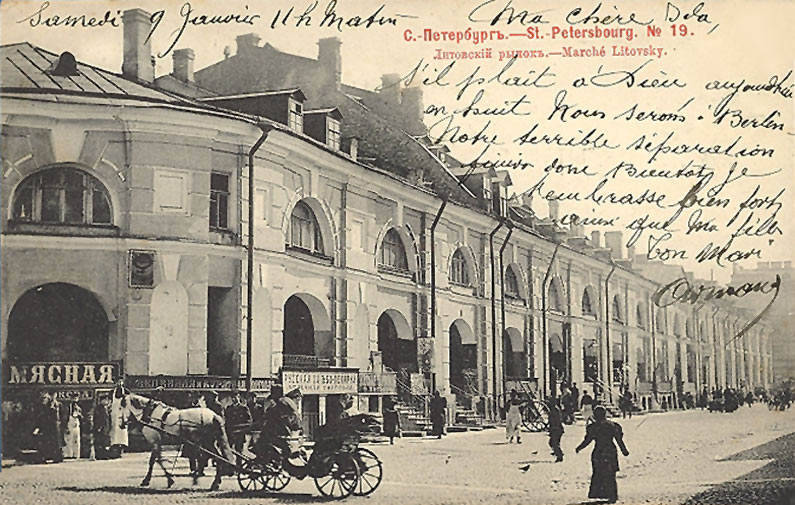 Samedi 9 Janvier 11h Matin
Ma Chère Bela,
С.-Петербургъ.—St.-Petersbourg. № 19.
Литовскій рынокъ.—Marché Litovsky.
S'il plait à Dieu aujourd'hui
en huit Nous serons à Berlin
Notre terrible séparation
donc bientôt, je
t'embrasse bien fort
ainsi que Ma fille
Ton Mari
МЯСНАЯ